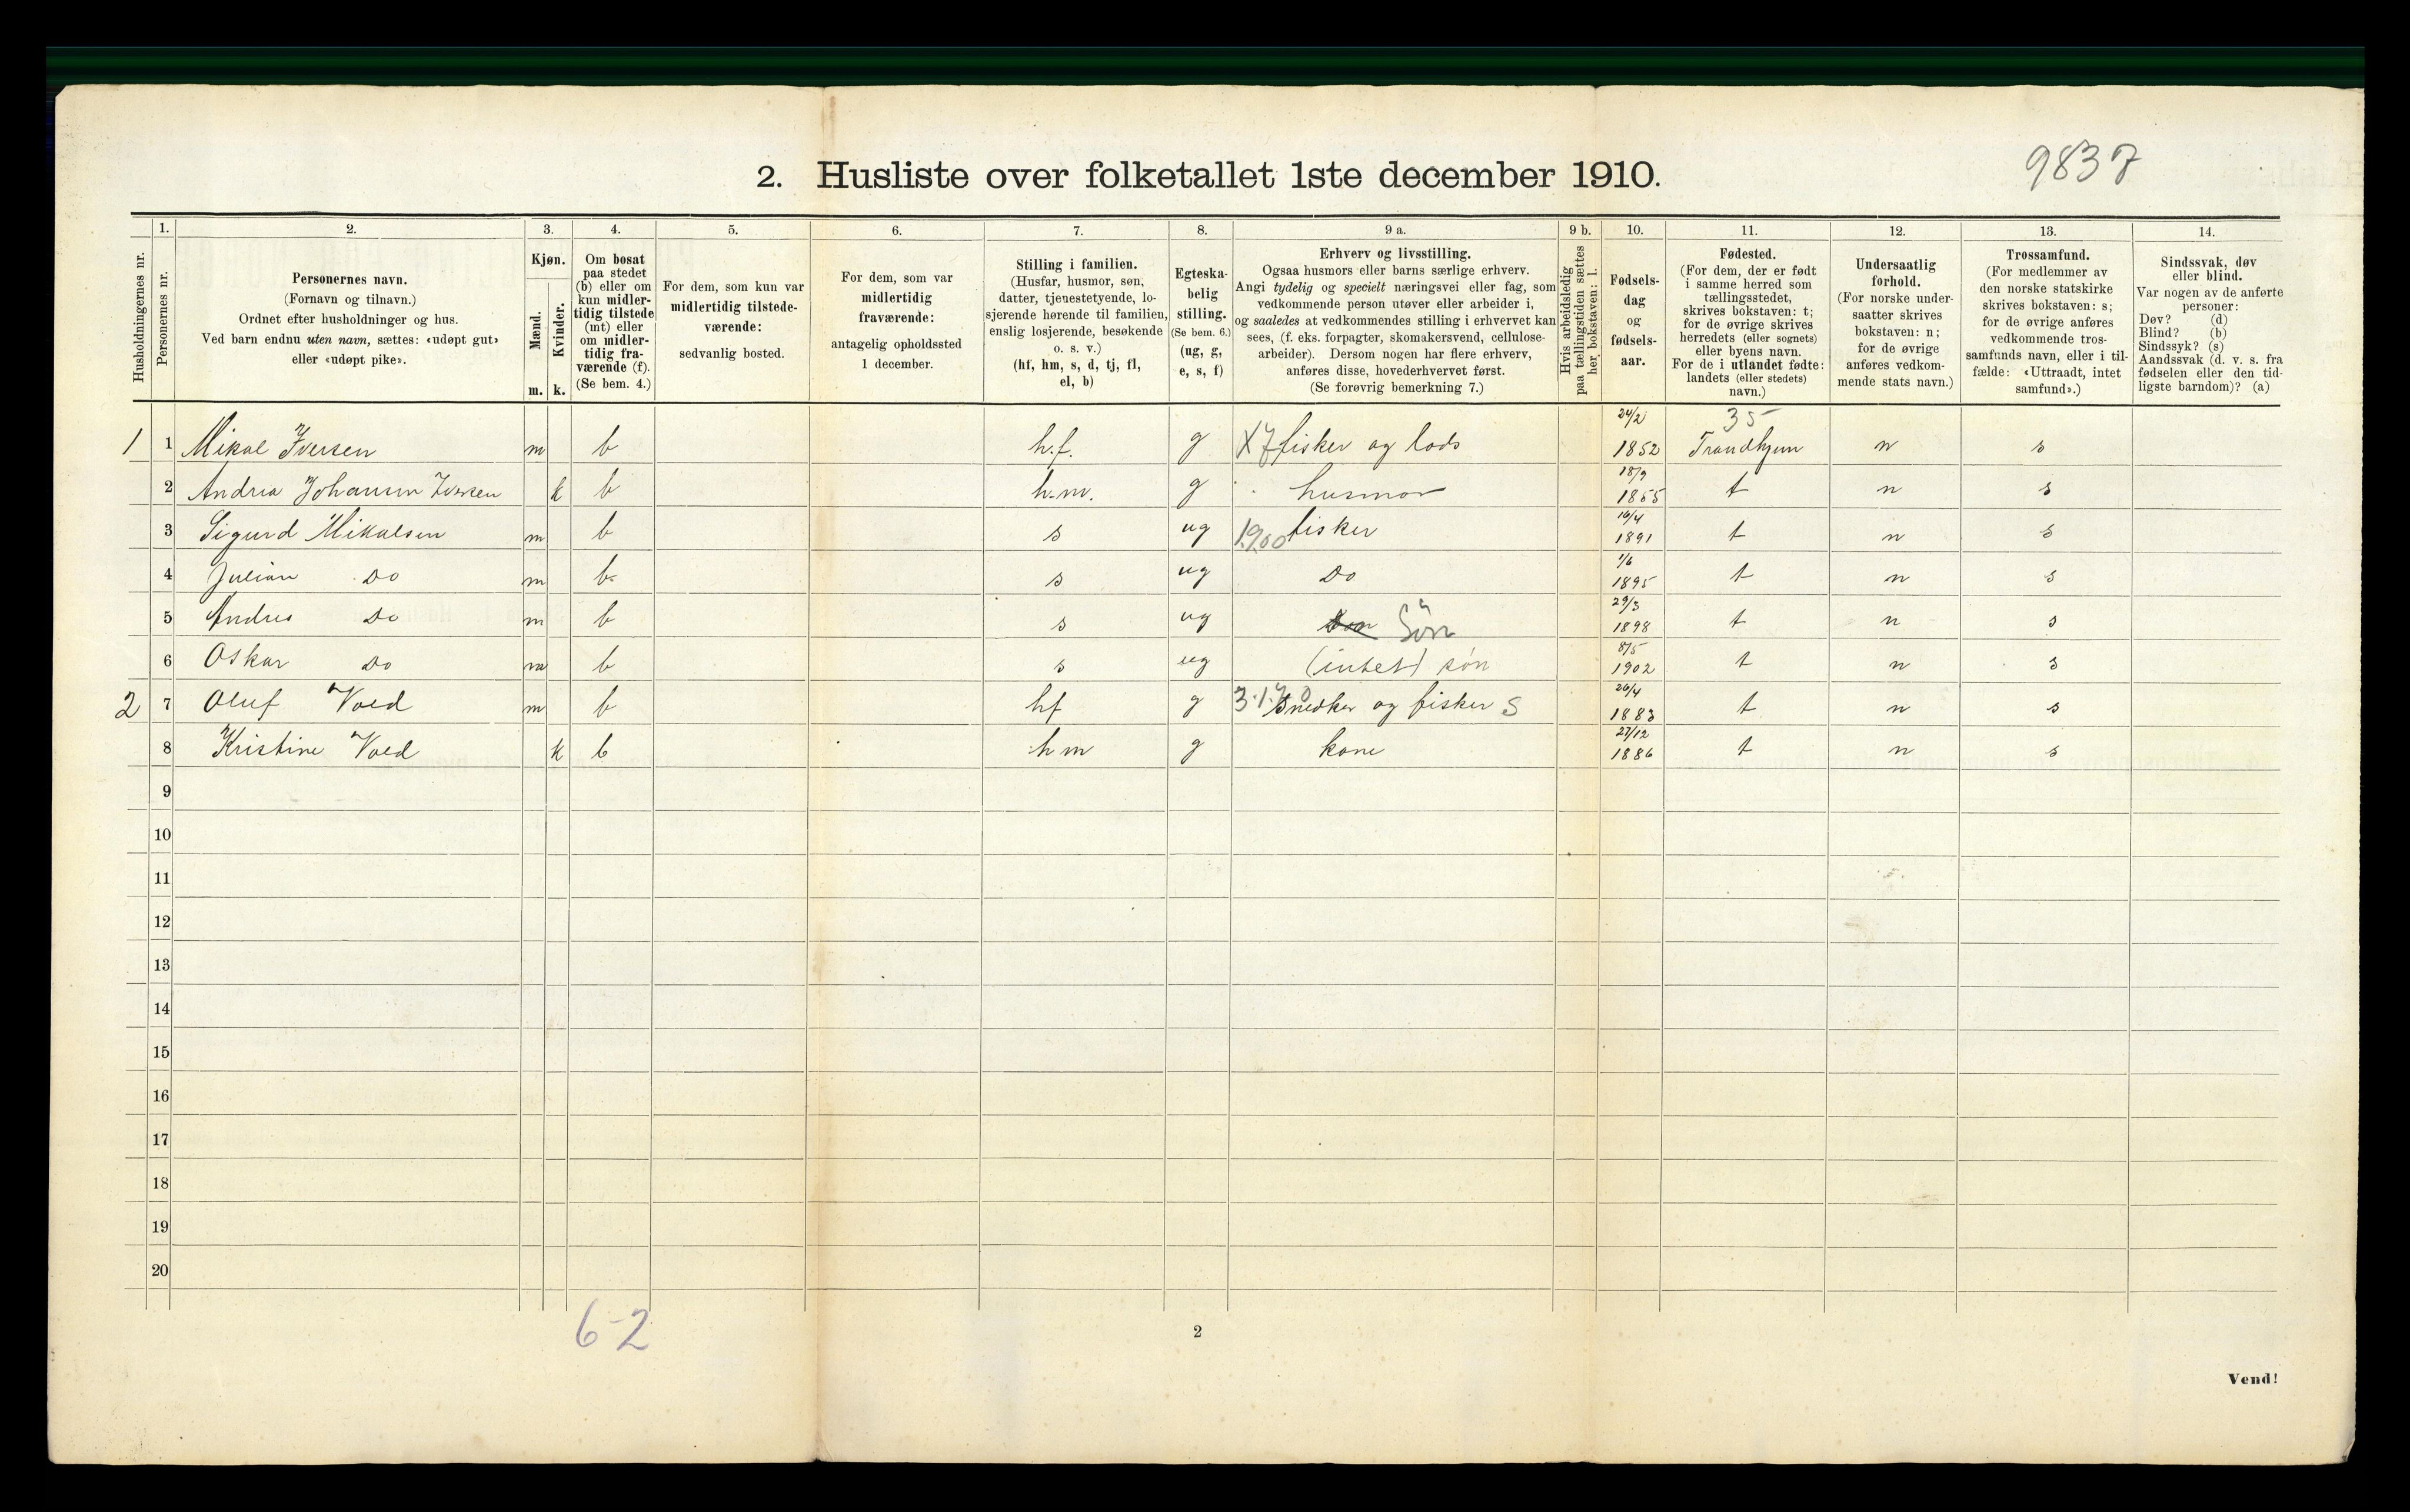 9837
2. Husliste over folketallet 1ste december 1910.
1. 2. 3. 4. 5. 6. 7. 8. 9 a. 9 b. 10. 11. 12. 13. 14.
Husholdningernes nr.
Personernes nr.
Personernes navn.
(Fornavn og tilnavn.)
Ordnet efter husholdninger og hus.
Ved barn endnu uten navn, sættes: «udøpt gut»
eller «udøpt pike».
Kjøn.
Mænd.
Kvinder.
m. k.
Om bosat
paa stedet
(b) eller om
kun midler-
tidig tilstede
(mt) eller
om midler-
tidig fra-
værende (f).
(Se bem. 4.)
For dem, som kun var
midlertidig tilstede-
værende:
sedvanlig bosted.
For dem, som var
midlertidig
fraværende:
antagelig opholdssted
1 december.
Stilling i familien.
(Husfar, husmor, søn,
datter, tjenestetyende, lo-
sjerende hørende til familien,
enslig losjerende, besøkende
o. s. v.)
(hf, hm, s, d, tj, fl,
el, b)
Egteska-
belig
stilling.
(Se bem. 6.)
(ug, g,
e, s, f)
Erhverv og livsstilling.
Ogsaa husmors eller barns særlige erhverv.
Angi tydelig og specielt næringsvei eller fag, som
vedkommende person utøver eller arbeider i,
og saaledes at vedkommendes stilling i erhvervet kan
sees, (f. eks. forpagter, skomakersvend, cellulose-
arbeider). Dersom nogen har flere erhverv,
anføres disse, hovederhvervet først.
(Se forøvrig bemerkning 7.)
Hvis arbeidsledig
paa tællingstiden sættes
her bokstaven: l.
Fødsels-
dag
og
fødsels-
aar.
Fødested.
(For dem, der er født
i samme herred som
tællingsstedet,
skrives bokstaven: t;
for de øvrige skrives
herredets (eller sognets)
eller byens navn.
For de i utlandet fødte:
landets (eller stedets)
navn.)
Undersaatlig
forhold.
(For norske under-
saatter skrives
bokstaven: n;
for de øvrige
anføres vedkom-
mende stats navn.)
Trossamfund.
(For medlemmer av
den norske statskirke
skrives bokstaven: s;
for de øvrige anføres
vedkommende tros-
samfunds navn, eller i til-
fælde: «Uttraadt, intet
samfund».)
Sindssvak, døv
eller blind.
Var nogen av de anførte
personer:
Døv? (d)
Blind? (b)
Sindssyk? (s)
Aandssvak (d. v. s. fra
fødselen eller den tid-
ligste barndom)? (a)
1 1 Mikal Iversen m b h.f. g X 7 fisker og lods 24/2 1852 35 Trondhjem n s
2 Andrea Johansen Iversen k b h.m. g husmor 18/9 1855 t n s
3 Sigurd Mikalsen m b s ug 1900 fisker 16/4 1891 t n s
4 Julian Do m b s ug Do 1/6 1895 t n s
5 Andres Do m b s ug Søn 29/3 1898 t n s
6 Oskar Do m b s ug (intet) søn 8/5 1902 t n s
2 7 Oluf Vold m b hf g Snedker og fisker S 26/4 1883 t n s
8 Kristine Vold k b hm g kone 27/12 1886 t n s
9
10
11
12
13
14
15
16
17
18
19
20
6-2
2
Vend!